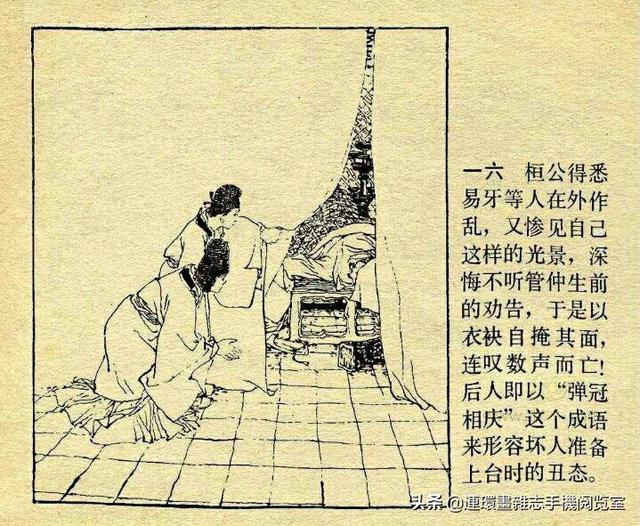 一六 桓公得悉
易牙等人在外作
乱，又惨见自己
这样的光景，深
悔不听管仲生前
的劝告，于是以
衣袂自掩其面，
连叹数声而亡！
后人即以“弹冠
相庆”这个成语
来形容坏人准备
上台时的丑态。
头条 @連環畫雜志手機阅览室